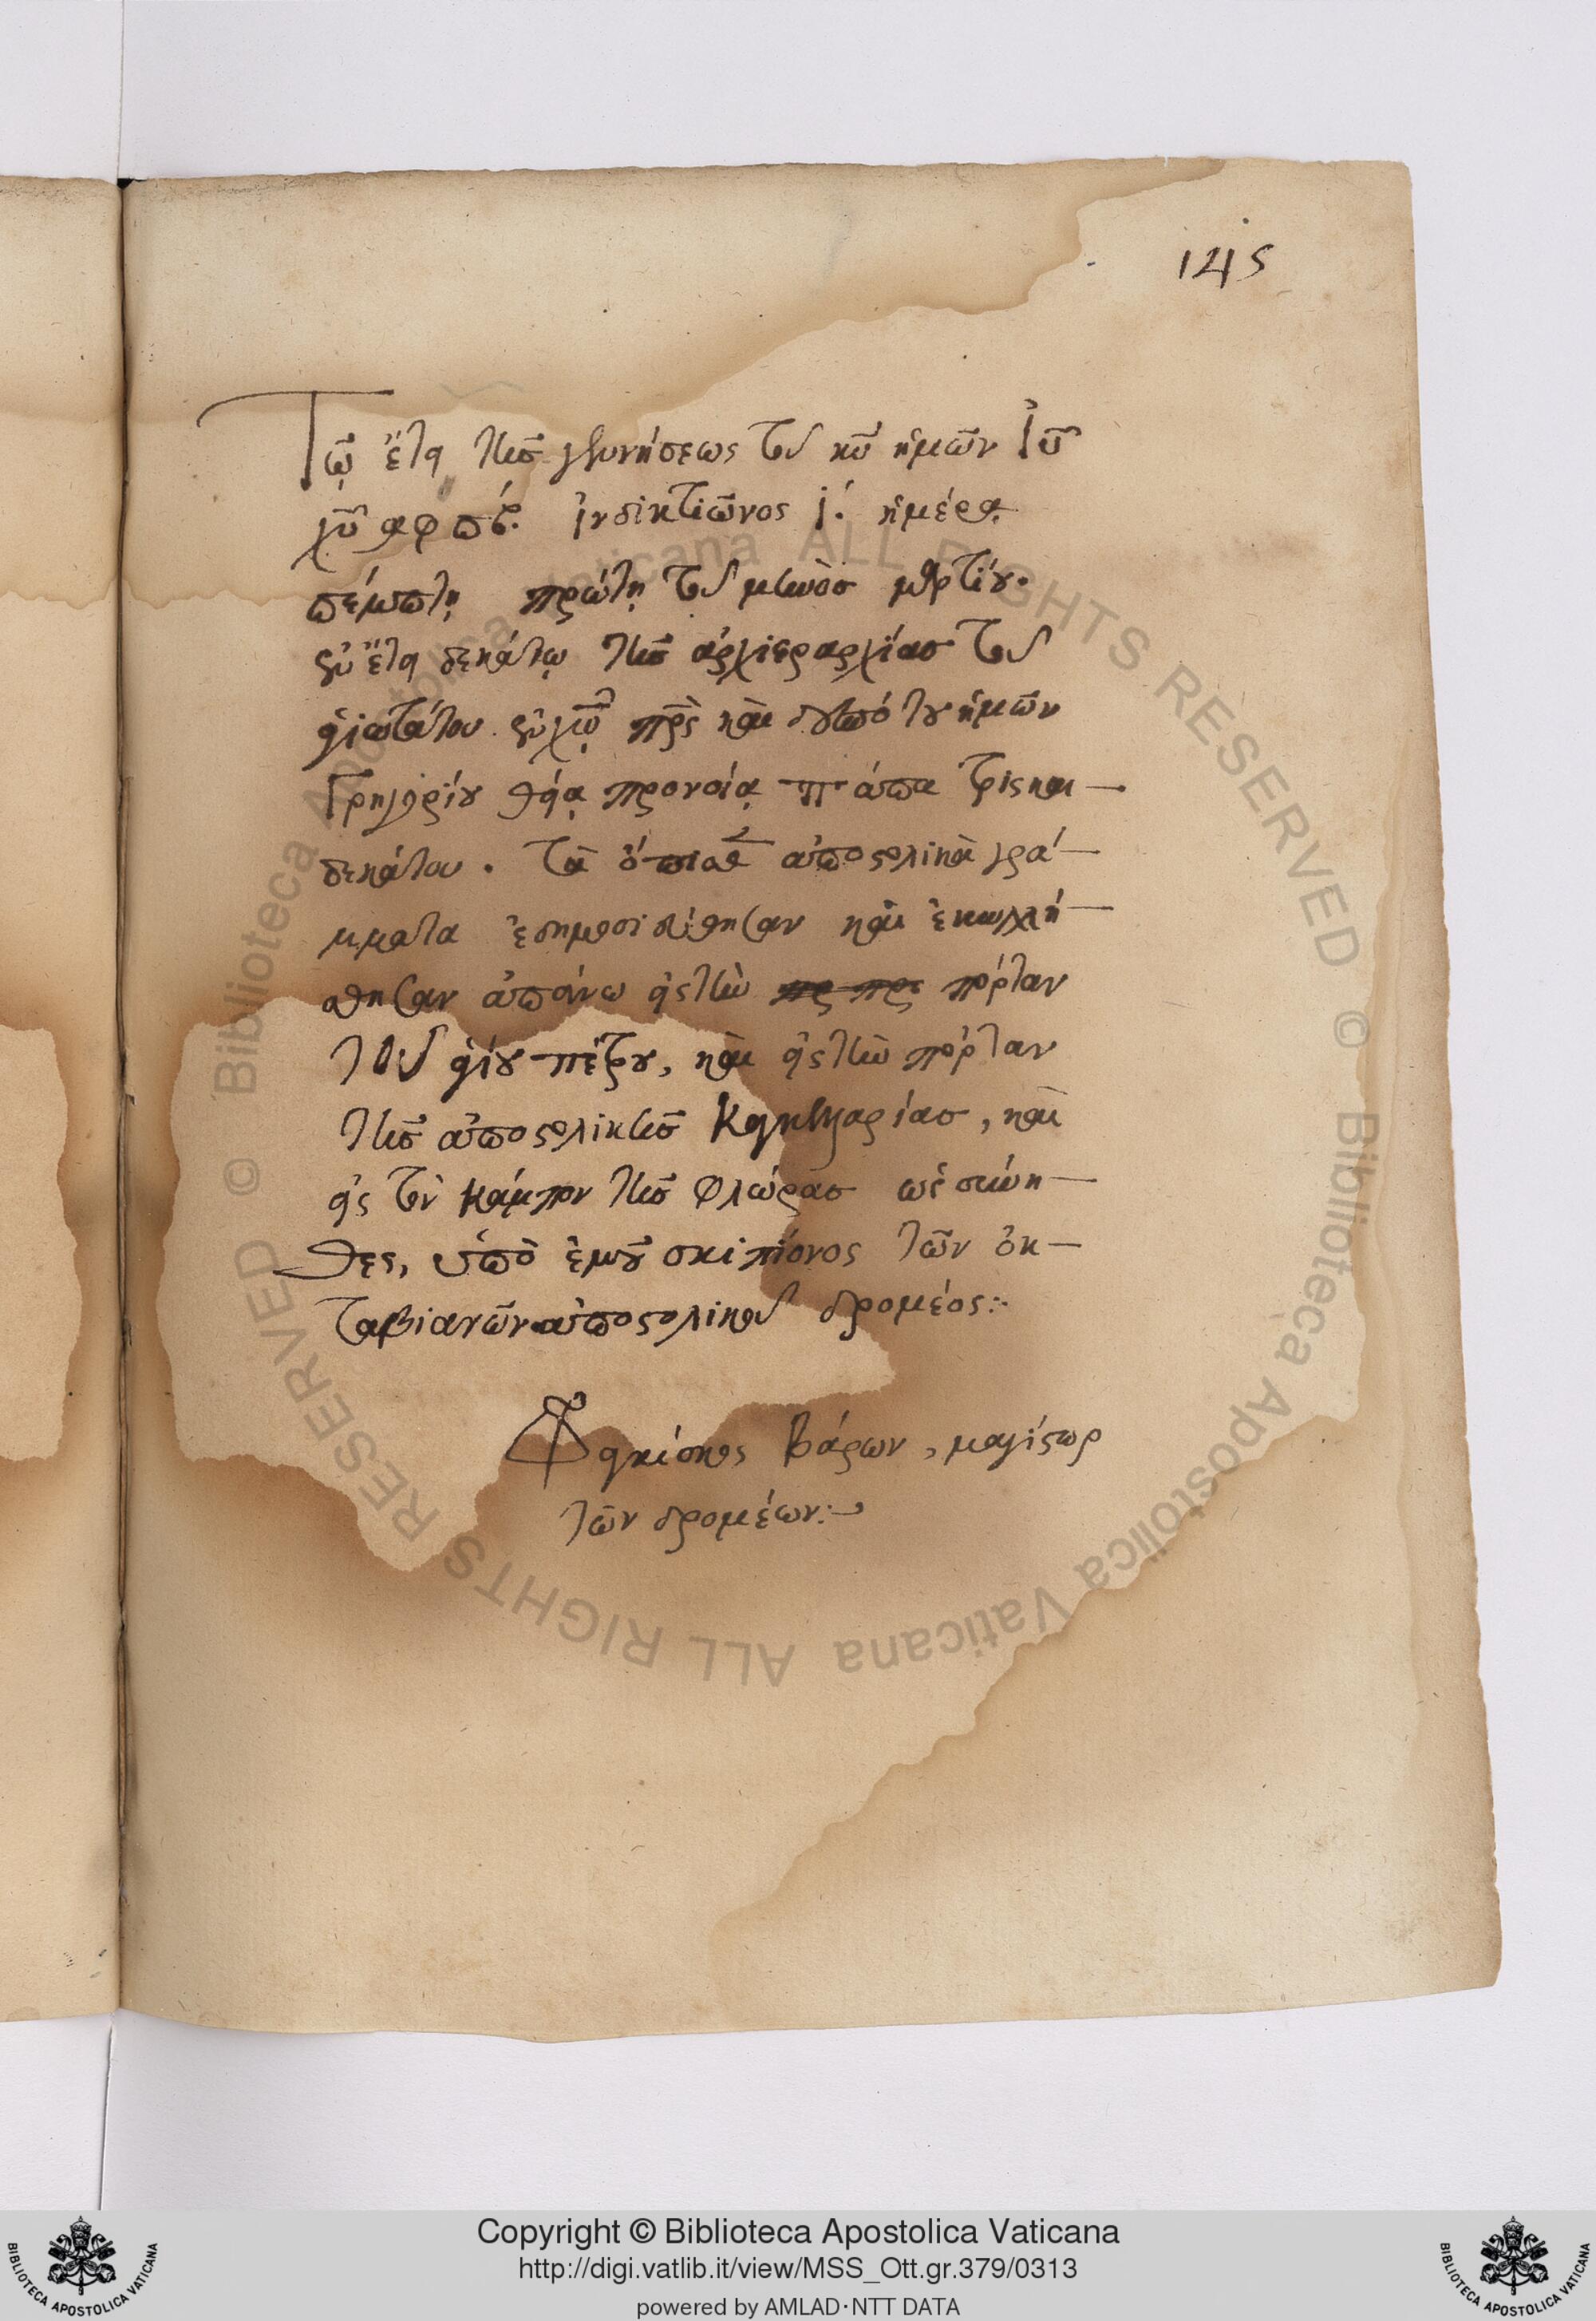 145
Τῷ ἔτει τῆς γεννήσεως τοῦ κυ̅ ἡμῶν Ἰυ̅
χυ̅ αφπβ. ἰνδικτιῶνος ι΄. ἡμέρᾳ
πέμπτῃ πρώτῃ τοῦ μηνὸς μαρτίου.
ἐν ἔτει δεκάτῳ τῆς ἀρχιεραρχίας τοῦ
ἁγιωτάτου ἐν χω̅ πρς̅ καὶ δεσπότου ἡμῶν
Γρηγορίου θείᾳ προνοίᾳ πάπα τρισκαι-
δεκάτου. Τὰ ὁποῖα ἀποστολικὰ γρά-
μματα ἐδημοσιεύθησαν καὶ ἐκολλή-
θησαν ἀπάνω εἰς τὴν πόρταν
τοῦ ἁγίου πέτρου, καὶ εἰς τὴν πόρταν
τῆς ἀποστολικῆς Καγκελλαρίας, καὶ
εἰς τὸν κάμπον τῆς Φλώρας ὡς σύνη-
θες, ὑπὸ ἐμοῦ σκιπίονος τῶν ὀκ-
ταβιανῶν ἀποστολικοῦ δρομέος:
Φραγκίσκος Βάρων, μαγίστωρ
τῶν δρομέων:
Copyright © Biblioteca Apostolica Vaticana
http://digi.vatlib.it/view/MSS_Ott.gr.379/0313
powered by AMLAD·NTT DATA
© Biblioteca Apostolica Vaticana ALL RIGHTS RESERVED © Biblioteca Apostolica Vaticana ALL RIGHTS RESERVED
BIBLIOTECA APOSTOLICA VATICANA
BIBLIOTECA APOSTOLICA VATICANA